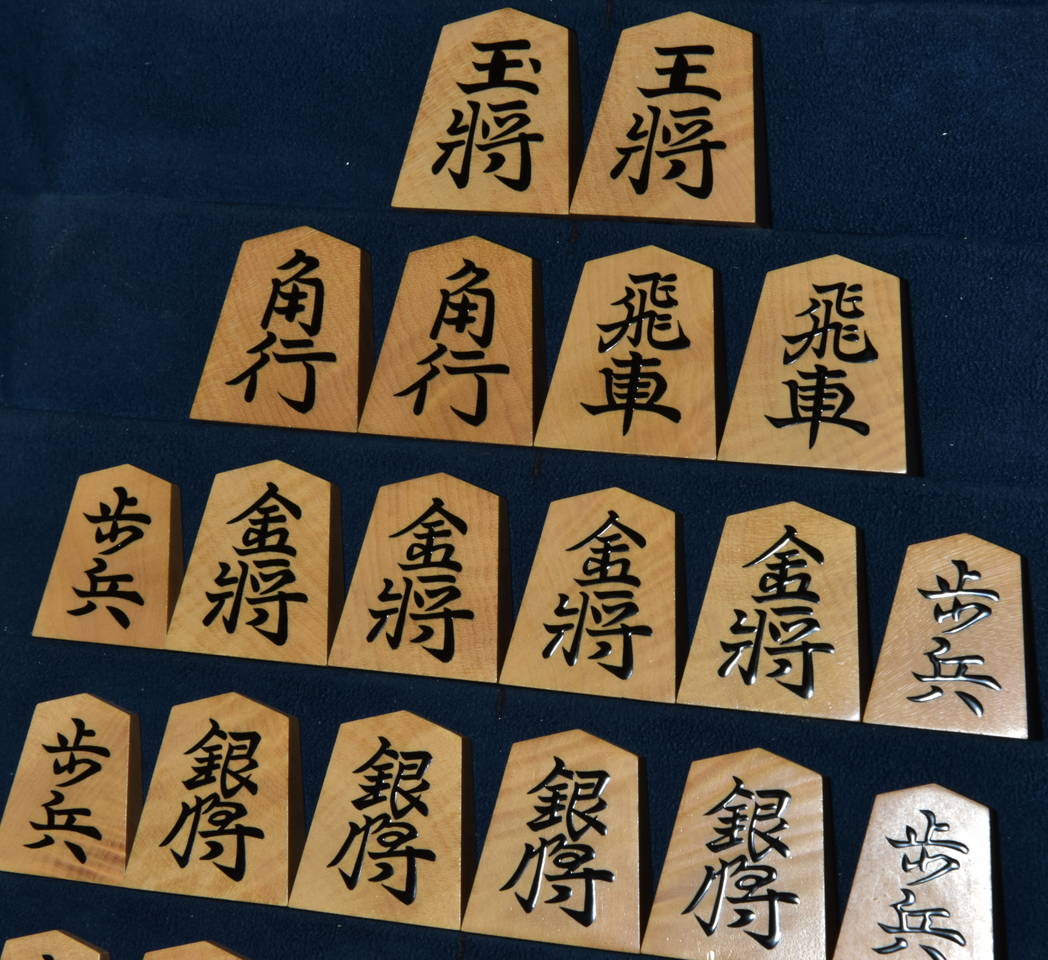 玉將
王將
角行
角行
飛車
飛車
歩兵
金將
金將
金將
金將
歩兵
歩兵
銀將
銀將
銀將
銀將
歩兵